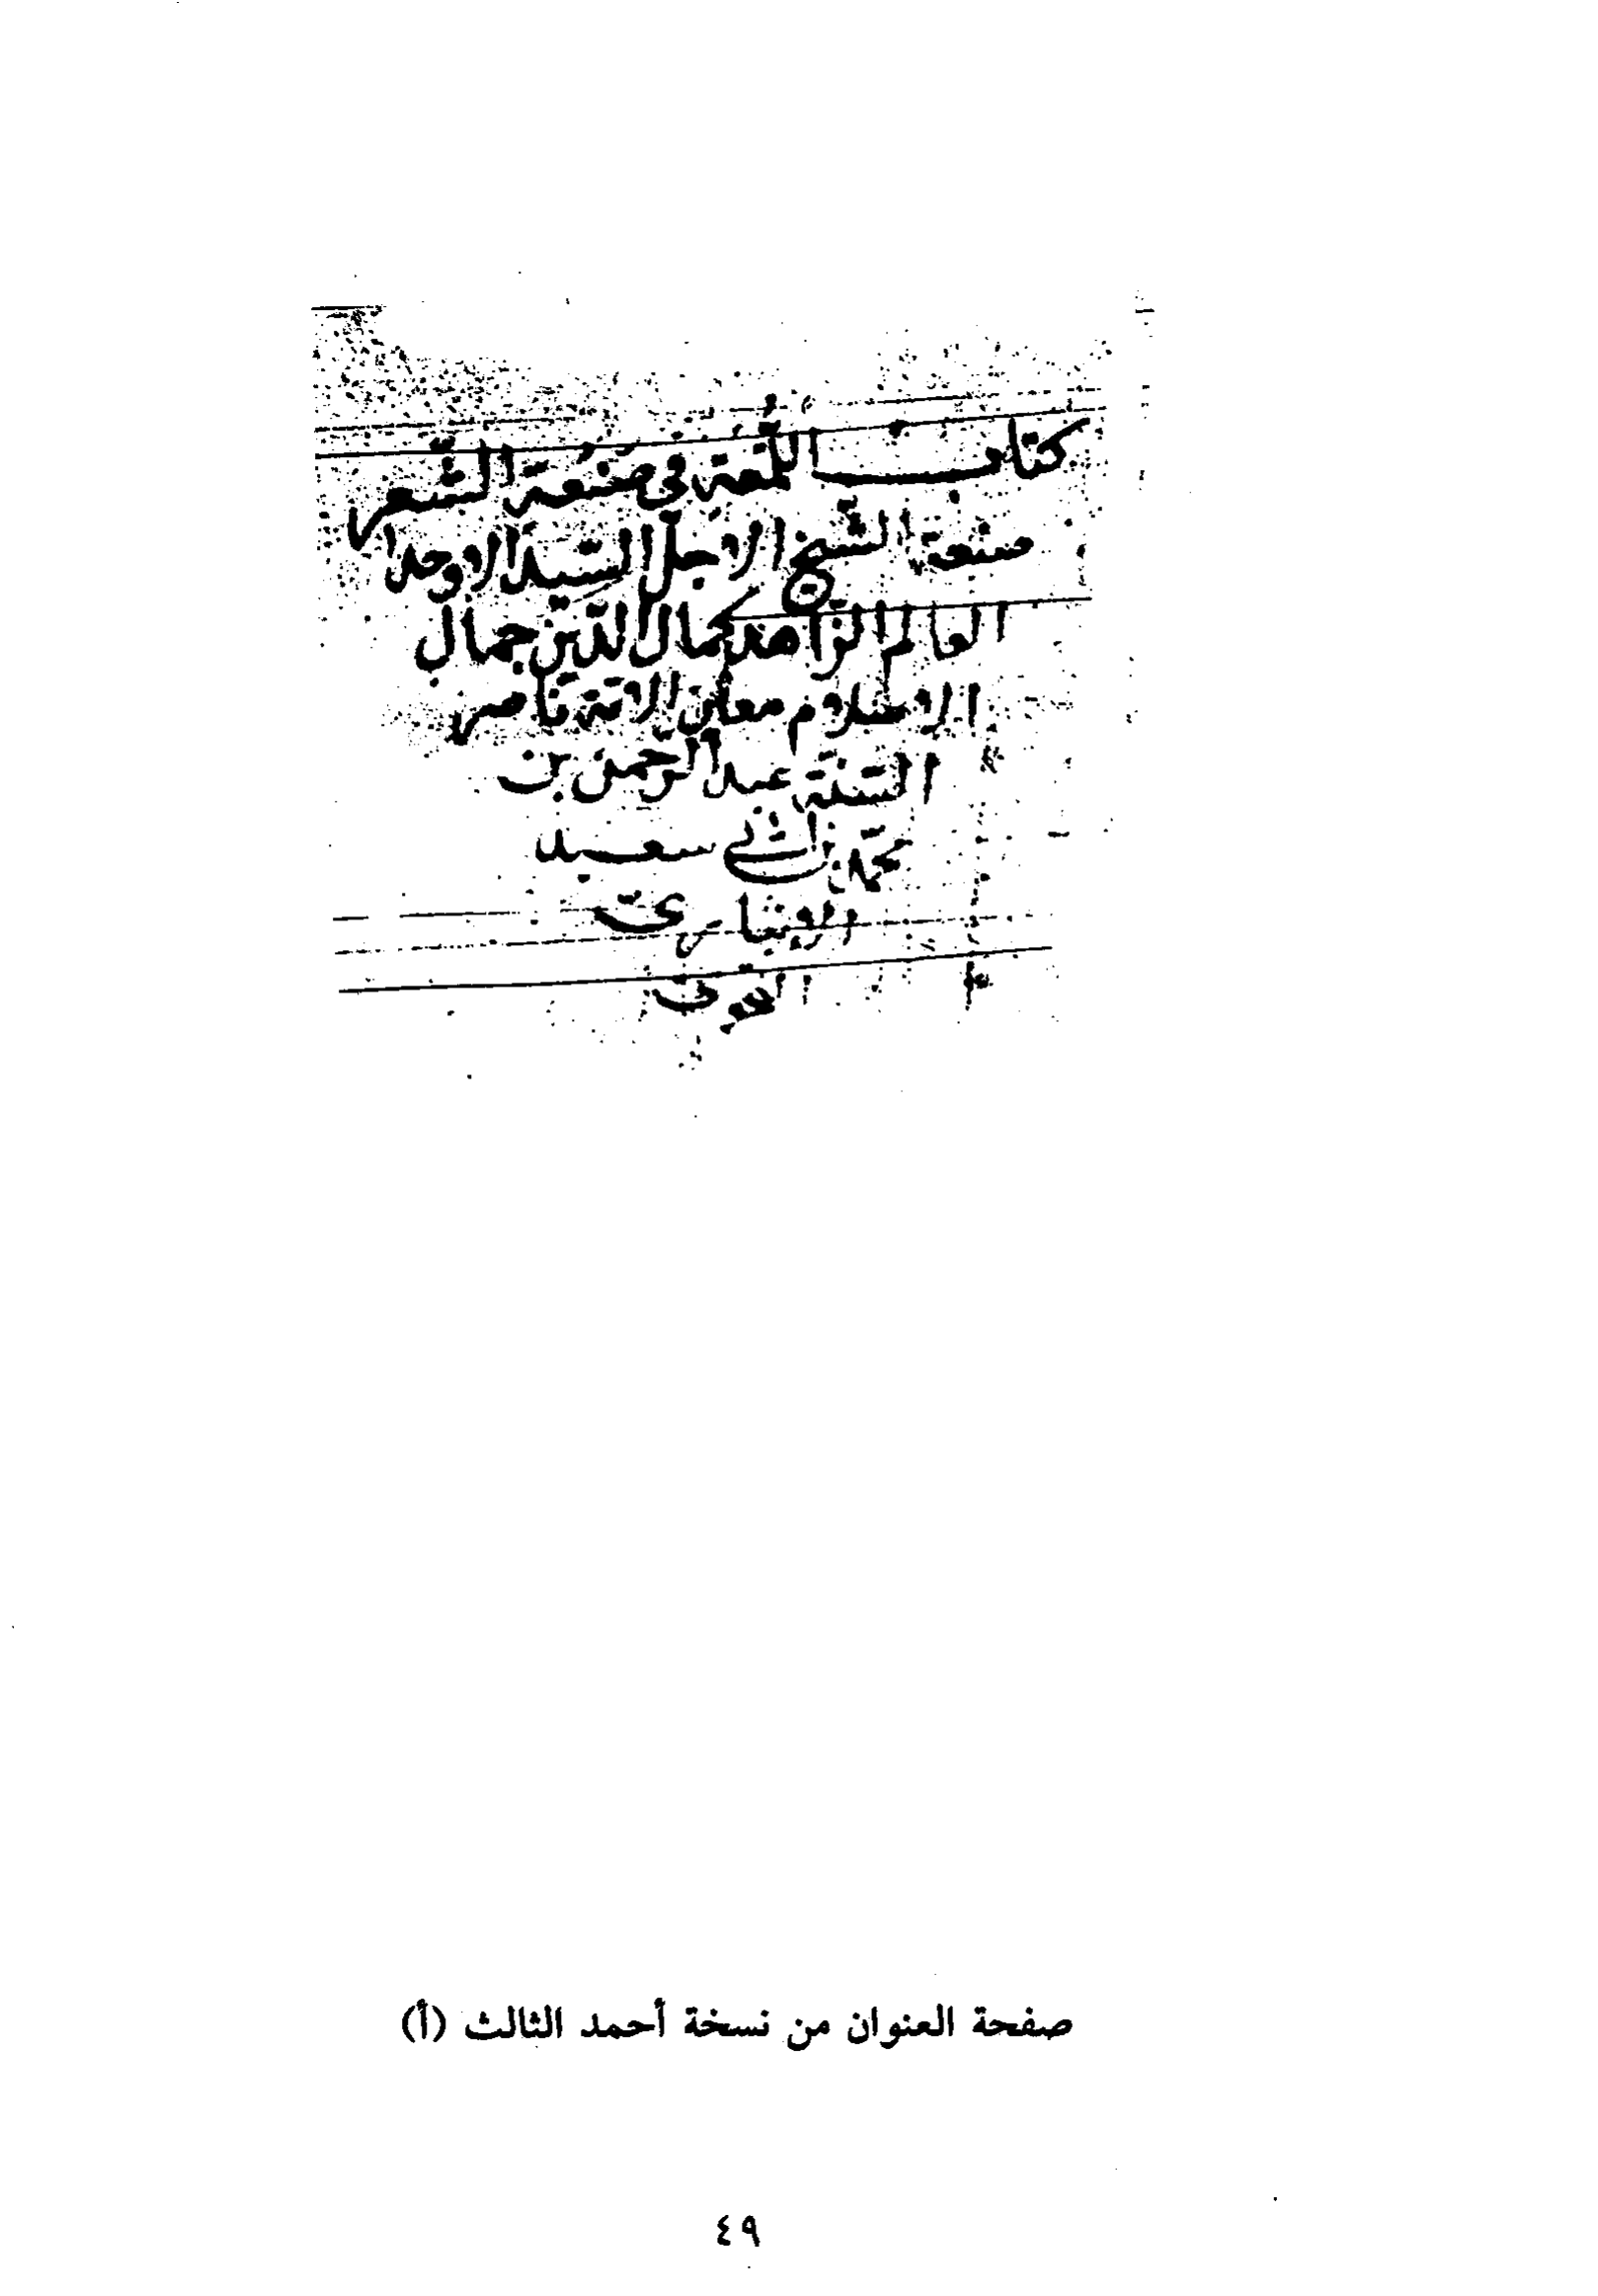 كتاب اللمعة في صنعة الشعر
صنعة الشيخ الاجل السيد الاوحد
العالم الزاهد كمال الدين جمال
الاسلام معين الامة ناصر
السنة عبد الرحمن بن
محمد بن ابي سعيد
الانباري
النحوي
صفحة العنوان من نسخة أحمد الثالث (أ)
٤٩